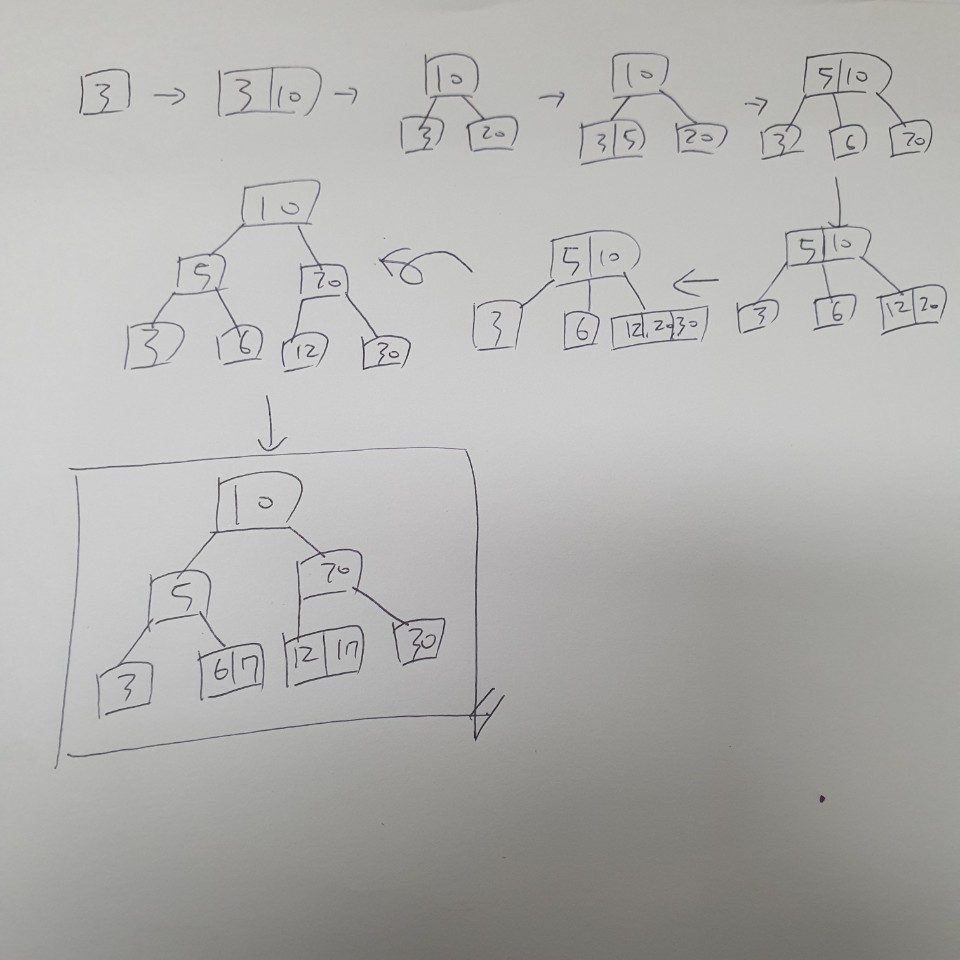 3 → 3 10 →
10
3 20
→
10
3 5 20
→
5 10
3 6 20
↓
5 10
3 6 12 20
←
5 10
3 6 12 20 30
←
10
5 20
3 6 12 30
↓
10
5 20
3 6 7 12 17 30